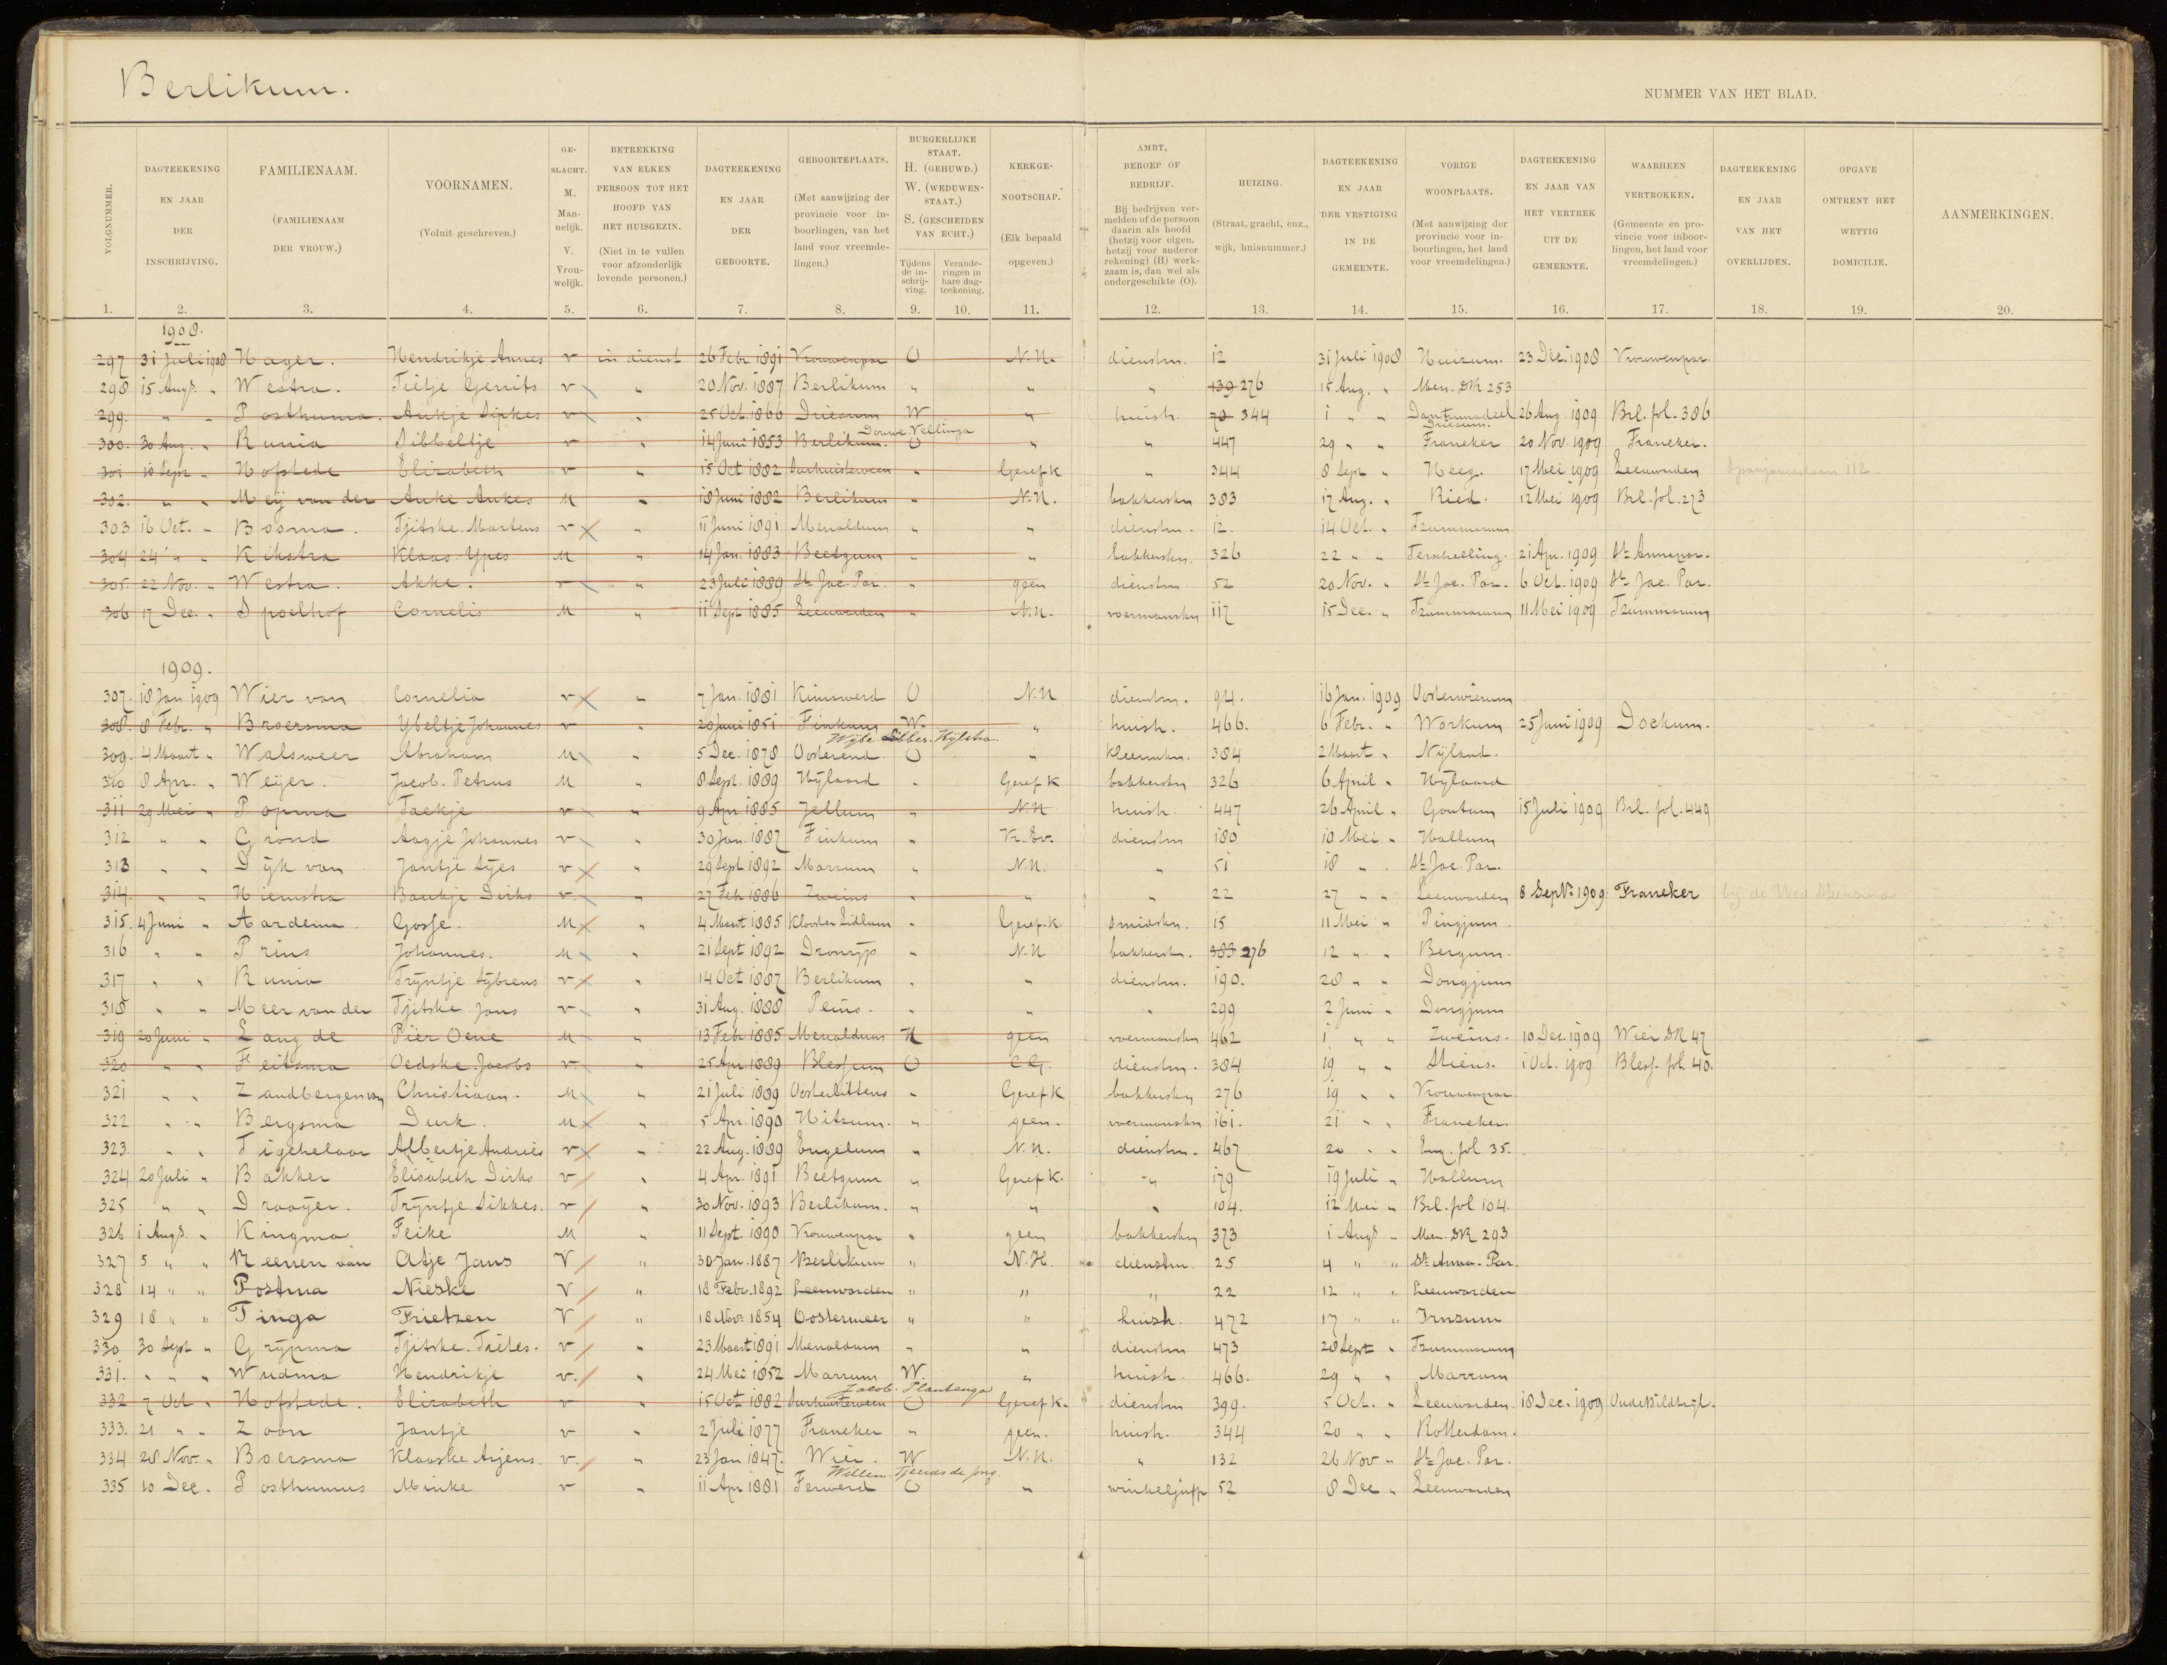 Berlikum.
NUMMER VAN HET BLAD.
VOLGNUMMER. 1.
DAGTEEKENING EN JAAR DER INSCHRIJVING. 2.
FAMILIENAAM. (FAMILIENAAM DER VROUW.) 3.
VOORNAMEN. (Voluit geschreven.) 4.
GESLACHT. M. Mannelijk. V. Vrouwelijk. 5.
BETREKKING VAN ELKEN PERSOON TOT HET HOOFD VAN HET HUISGEZIN. (Niet in te vullen voor afzonderlijk levende personen.) 6.
DAGTEEKENING EN JAAR DER GEBOORTE. 7.
GEBOORTEPLAATS. (Met aanwijzing der provincie voor inboorlingen, van het land voor vreemdelingen.) 8.
BURGERLIJKE STAAT. H. (GEHUWD.) W. (WEDUWENSTAAT.) S. (GESCHEIDEN VAN ECHT.)
Tijdens de inschrijving. 9.
Veranderingen in hare dagteekening. 10.
KERKGENOOTSCHAP. (Elk bepaald opgeven.) 11.
AMBT, BEROEP OF BEDRIJF. Bij bedrijven vermelden of de persoon daarin als hoofd (hetzij voor eigen, hetzij voor anderer rekening) (H) werkzaam is, dan wel als ondergeschikte (O). 12.
HUIZING. (Straat, gracht, enz., wijk, huisnummer.) 13.
DAGTEEKENING EN JAAR DER VESTIGING IN DE GEMEENTE. 14.
VORIGE WOONPLAATS. (Met aanwijzing der provincie voor inboorlingen, het land voor vreemdelingen.) 15.
DAGTEEKENING EN JAAR VAN HET VERTREK UIT DE GEMEENTE. 16.
WAARHEEN VERTROKKEN. (Gemeente en provincie voor inboorlingen, het land voor vreemdelingen.) 17.
DAGTEEKENING EN JAAR VAN HET OVERLIJDEN. 18.
OPGAVE OMTRENT HET WETTIG DOMICILIE. 19.
AANMERKINGEN. 20.
1908.
297 31 Juli 1908 Hager. Hendrikje Annes v in dienst 26 Febr. 1891 Vrouwenpar O N.H. dienstm. 12 31 Juli 1908 Huizum. 23 Dec. 1908 Vrouwenpar.
298 15 Augs. " Westra. Tietje Gerrits v " 20 Nov. 1887 Berlikum " " " 139 276 15 Aug. " Men. DR 253
299. " " Posthuma. Aukje Sipkes v " 25 Oct. 1866 Driesum W " huish. 70 344 1 " " Dantumadeel Driesum. 26 Aug. 1909 Brl. fol. 386
Douwe Vellinga
300. 30 Aug. " Runia Sibbeltje v " 14 Juni 1853 Berlikum. O " " 447 29 " " Franeker 20 Nov. 1909 Franeker.
301 10 Sept " Hofstede Elizabeth v " 15 Oct 1882 Surhuisterveen " Geref K " 344 8 Sept " Heeg. 17 Mei 1909 Leeuwarden Spanjaardslaan 112.
302. " " Meij van der Anke Ankes M " 18 Juni 1882 Berlikum " N.H. bakkerskn 383 17 Aug. " Ried. 12 Mei 1909 Brl. fol. 273
303 16 Oct. " Bosma. Tjitske Martens v " 11 Juni 1891 Menaldum " " dienstm. 12. 14 Oct. " Tzummarum
304 24 " " Kikstra Klaas Ypes M " 14 Jan. 1883 Beetgum " " bakkerskn. 326 22 " " Terschelling. 21 Apr. 1909 St Annapar.
305. 22 Nov. " Westra. Akke. v " 23 Juli 1889 St Jac. Par. " geen dienstm 52 20 Nov. " St Jac. Par. 6 Oct. 1909 St Jac. Par.
306 17 Dec. " Spoelhof Cornelis M " 11 Sept 1885 Leeuwarden " N.H. voermanskn 117 15 Dec. " Tzummarum 11 Mei 1909 Tzummarum
1909.
307. 18 Jan 1909 Wier van Cornelia v " 7 Jan. 1881 Kimswerd O N.H dienstm. 94. 16 Jan. 1909 Oosterwierum
308. 8 Febr. " Broersma Ybeltje Johannes v " 20 Juni 1851 Finkum W. " huish. 466. 6 Febr. " Workum 25 Juni 1909 Dockum.
Wijbe Hylstra
309. 4 Maart " Walsweer Abraham M " 5 Dec. 1878 Oosterend. O " Kleermkn. 384 2 Maart " Nijland.
310 8 Apr. " Weijer. Jacob. Petrus M " 8 Sept. 1889 Wijlaard " Geref K bakkerskn 326 6 April " Wijlaard
311 29 Mei " Popma Taekje v " 9 Apr. 1885 Jellum " N.H huish 447 26 April " Goutum 15 Juli 1909 Brl. fol. 449
312 " " Grond Aagje Johannes v " 30 Jan. 1887 Finkum " Vr. Ev. dienstm 180 10 Mei " Hallum
313 " " Dijk van Jantje Sjes v " 29 Sept 1892 Marrum " N.H. " 51 18 " " St Jac. Par.
314. " " Hiemstra Baukje Dirks v " 27 Feb 1886 Zweins " " " 22 27 " " Leeuwarden 8 Sept 1909. Franeker bij de Wed
315. 4 Juni " Aardema. Gosse. M " 4 Maart 1885 Klooster Lidlum " Geref. K. smidskn. 15 11 Mei " Pingjum
316 " " Prins Johannes. M " 21 Sept 1892 Dronrijp " N.H bakkerskn. 383 276 12 " " Bergum.
317 " " Runia Trijntje Sybrens v " 14 Oct 1887 Berlikum " " dienstm. 190. 28 " " Dongjum
318 " " Meer van der Tjitske Jans v " 31 Aug. 1888 Peins. " " " 299 2 Juni " Dongjum
319 20 Juni " Lang de Pier Oene M " 13 Febr 1885 Menaldum H geen voermanskn 462 1 " " Zweins. 10 Dec. 1909 Wier DR 47
320 " " Feitsma Oedske Jacobs v " 25 Apr. 1889 Blessum O C.G. dienstm. 384 19 " " Stiens. 1 Oct. 1909 Bless. fol. 40.
321 " " Zandbergen van Christiaan. M " 21 Juli 1889 Oosterlittens " Geref K bakkerskn 276 19 " " Vrouwenpar.
322 " " Bergsma Durk. M " 5 Apr. 1890 Hitzum. " geen. voermanskn 161. 21 " " Franeker.
323 " " Tigchelaar Albertje Andries v " 22 Aug. 1889 Engelum " N.H. dienstm. 467 20 " " Eng. fol 35.
324 20 Juli " Bakker Elisabeth Dirks v " 4 Apr. 1891 Beetgum " Geref K. " 179 19 Juli " Hallum
325 " " Draaijer. Trijntje Sikkes. v " 30 Nov. 1893 Berlikum. " " " 104. 12 Mei " Brl. fol 104.
326 1 Augs. " Kingma Feike M " 11 Sept. 1890 Vrouwenpar " geen bakkerskn 373 1 Augs " Men. DR 293
327 5 " " Reenen van Atje Jans V " 30 Jan. 1887 Berlikum " N.H. dienstm. 25 4 " " St Anna. Par.
328 14 " " Postma Nieske V " 18 Febr. 1892 Leeuwarden " " " 22 12 " " Leeuwarden
329 18 " " Tinga Frietzen V " 18 Novr 1854 Oostermeer " " huish. 472 17 " " Irnsum
330 30 Sept " Grijpma Tjitske. Tietes. v " 23 Maart 1891 Menaldum " " dienstm 473 28 Sept " Tzummarum
331. " " Wudma Hendrikje v. " 24 Mei 1852 Marrum W. " huish. 466. 29 " " Marrum
Jacob. Plantenga
332 7 Oct " Hofstede. Elizabeth v " 15 Oct 1882 Surhuisterveen O Geref K. dienstm 399. 5 Oct. " Leeuwarden. 18 Dec. 1909 Oudebildtzijl.
333. 21 " " Zoon Jantje v " 2 Juli 1877 Franeker " geen. huish. 344 20 " " Rotterdam.
334 28 Nov. " Boersma Klaaske Arjens. v. " 23 Jan 1847. Wier. W N.H. " 132 26 Nov " St Jac. Par.
Willem Tjeerds de Jong
335 10 Dec. " Posthumus Minke v " 11 Apr 1881 Ferwerd O " winkeljuffr 52 8 Dec " Leeuwarden